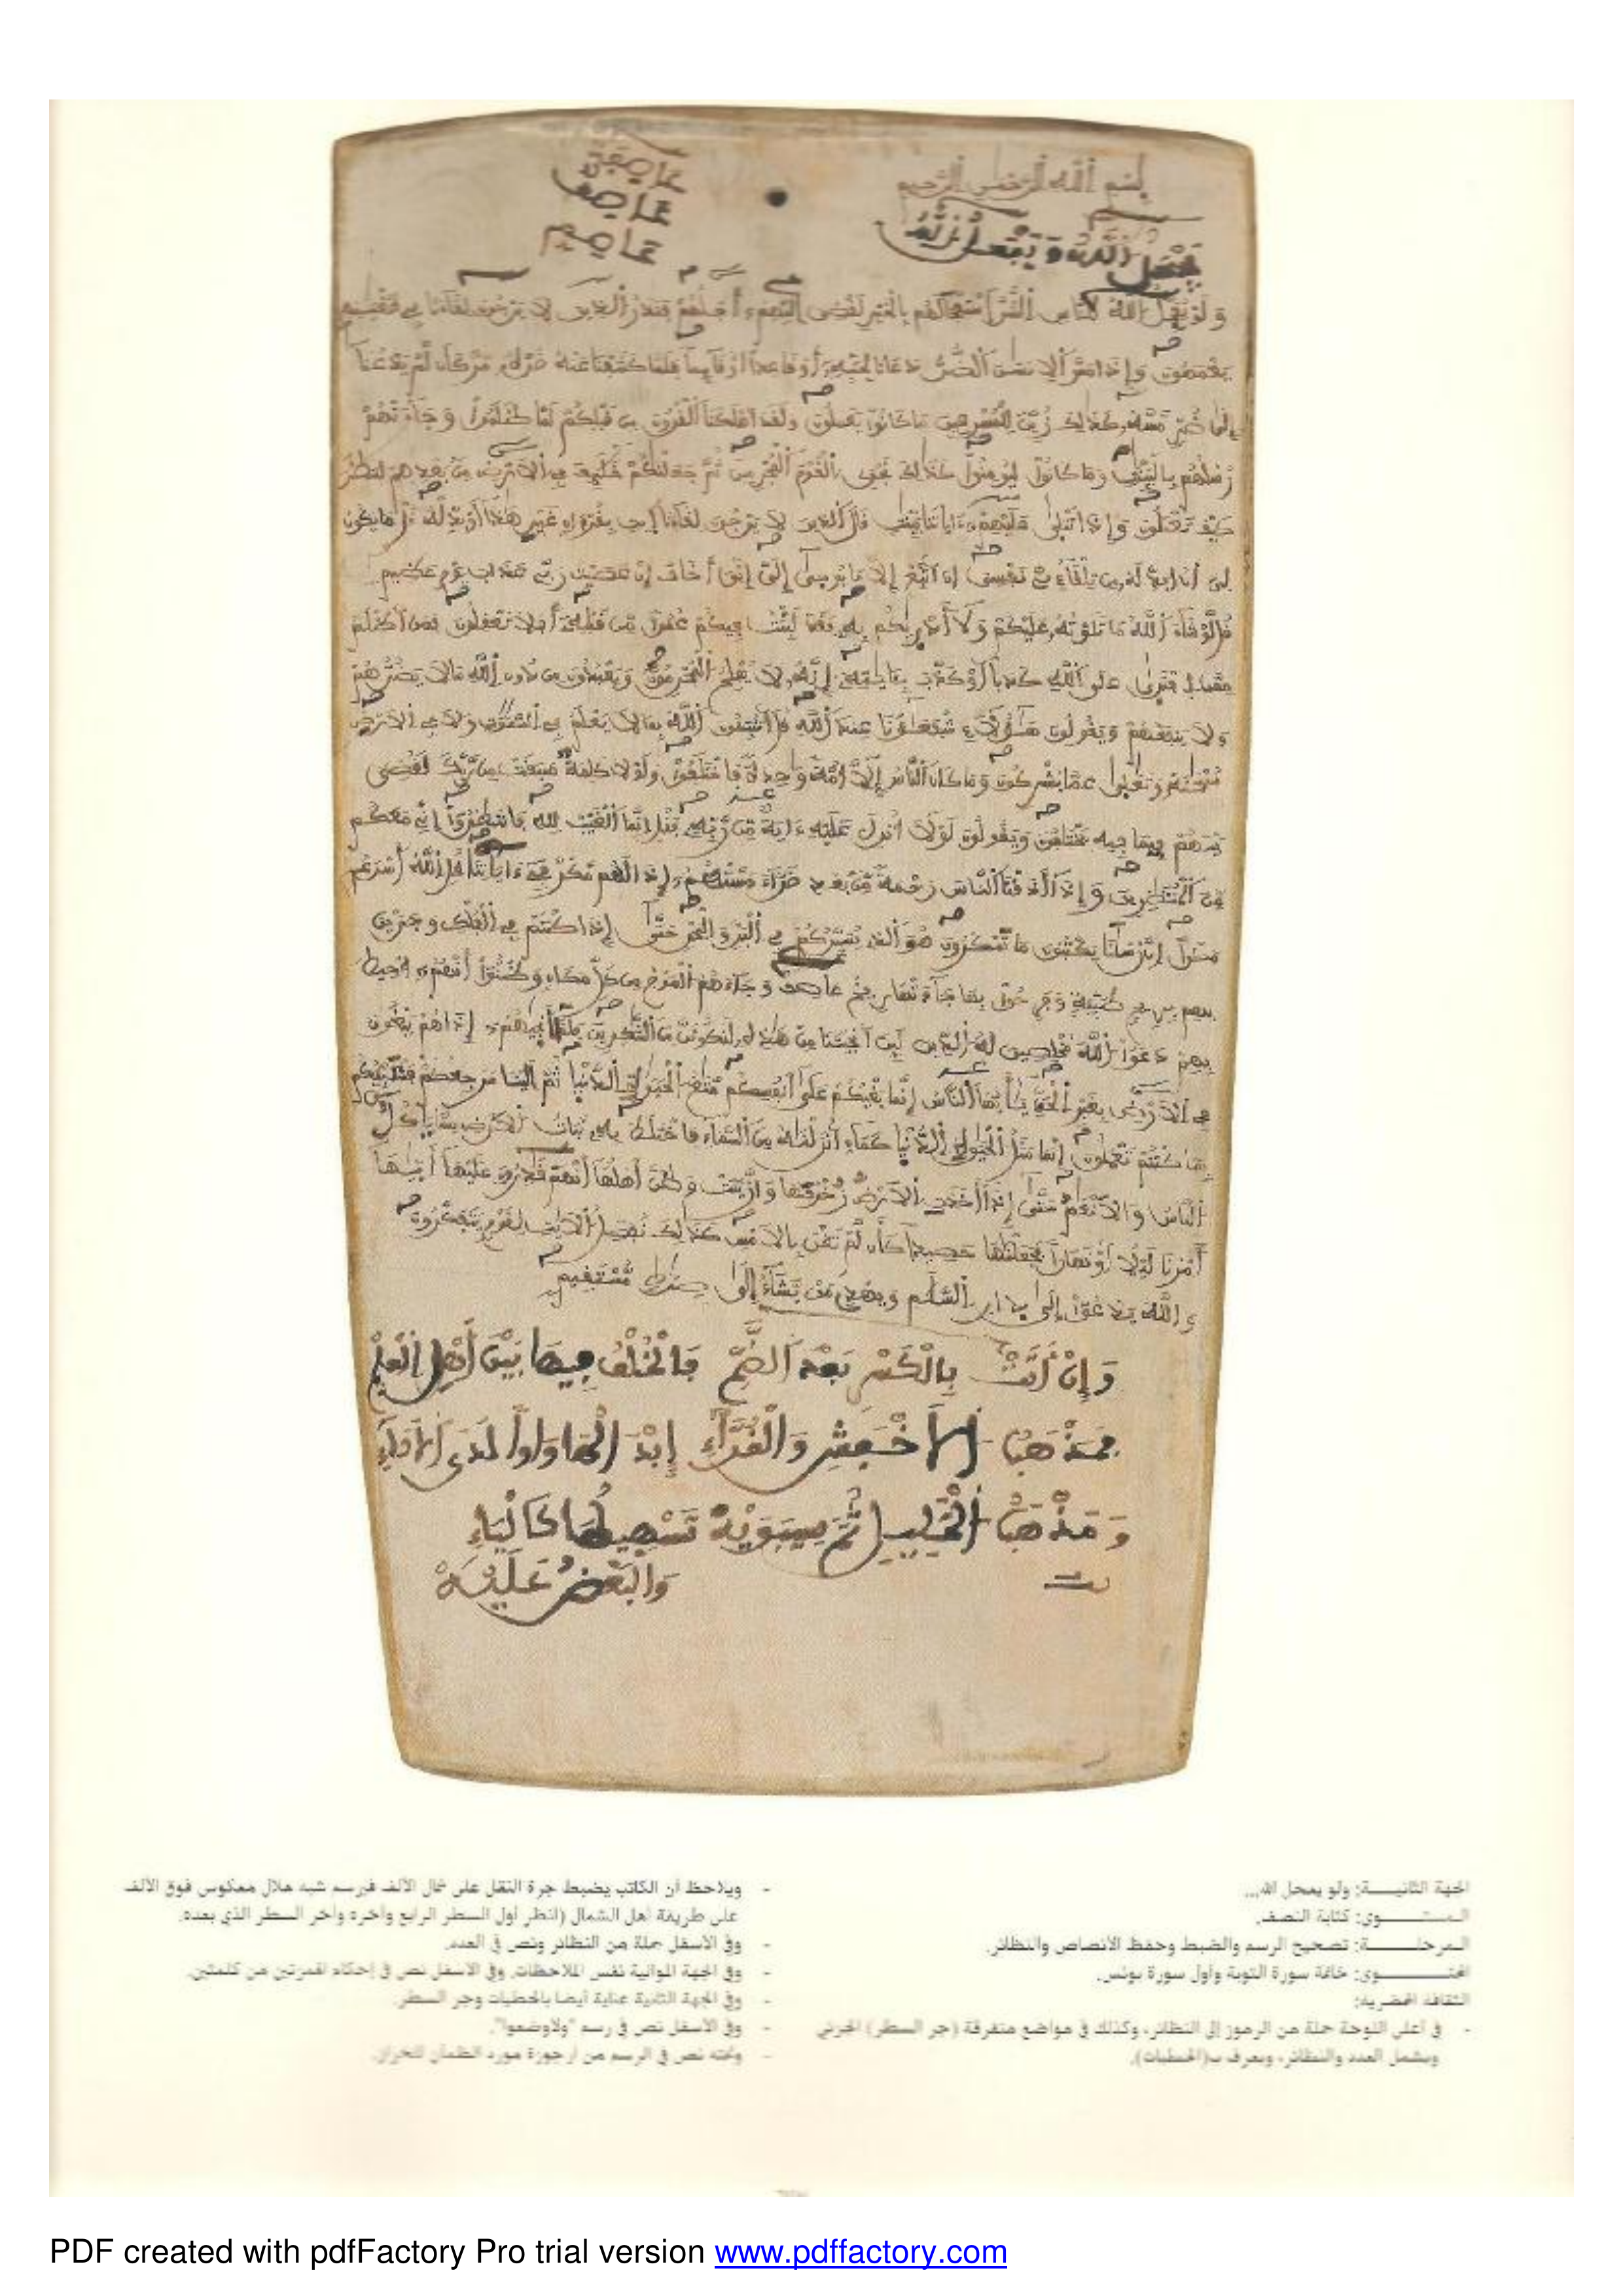 بسم الله الرحمن الرحيم
عاصفة
عاصف
عاصم
يعجل الله
ولو يعجل الله للناس الشر استعجالهم بالخير لقضى إليهم أجلهم فنذر الذين لا يرجون لقاءنا في طغينهم
يعمهون وإذا مس الانسن الضر دعانا لجنبه أو قاعدا أو قايما فلما كشفنا عنه ضره مر كأن لم يدعنا
إلى ضر مسه كذلك زين للمسرفين ما كانوا يعملون ولقد اهلكنا القرون من قبلكم لما ظلموا وجاءتهم
رسلهم بالبينت وما كانوا ليومنوا كذلك نجزي القوم المجرمين ثم جعلنكم خليف في الارض من بعدهم لننظر
كيف تعملون وإذا تتلى عليهم ءاياتنا بينت قال الذين لا يرجون لقاءنا ايت بقرءان غير هذا أو بدله قل ما يكون
لي أن ابدله من تلقاءي نفسي إن اتبع إلا ما يوحى إلي إني أخاف إن عصيت ربي عذاب يوم عظيم
قل لو شاء الله ما تلوته عليكم ولا أدريكم به فقد لبثت فيكم عمرا من قبله أفلا تعقلون فمن اظلم
ممن افترى على الله كذبا أو كذب بـايته إنه لا يفلح المجرمون ويعبدون من دون الله ما لا يضرهم
ولا ينفعهم ويقولون هؤلاء شفعؤنا عند الله قل اتنبئون الله بما لا يعلم في السموت ولا في الارض
سبحنه وتعلى عما يشركون وما كان الناس إلا أمة وحدة فاختلفوا ولولا كلمة سبقت من ربك لقضي
بينهم فيما فيه يختلفون ويقولون لولا أنزل عليه ءاية من ربه فقل إنما الغيب لله فانتظروا إني معكم
من المنتظرين وإذا أذقنا الناس رحمة من بعد ضراء مستهم إذا لهم مكر في ءاياتنا قل الله أسرع
مكرا إن رسلنا يكتبون ما تمكرون هو الذي يسيركم في البر والبحر حتى إذا كنتم في الفلك وجرين
بهم بريح طيبة وفرحوا بها جاءتها ريح عاصف وجاءهم الموج من كل مكان وظنوا أنهم أحيط
بهم دعوا الله مخلصين له الدين لين انجيتنا من هذه لنكونن من الشكرين فلما أنجيهم إذا هم يبغون
في الارض بغير الحق يأيها الناس إنما بغيكم على أنفسكم متع الحيوة الدنيا ثم إلينا مرجعكم فننبئكم
بما كنتم تعملون إنما مثل الحيوة الدنيا كماء أنزلنه من السماء فاختلط به نبات الارض مما ياكل
الناس والانعم حتى إذا أخذت الارض زخرفها وازينت وظن أهلها أنهم قدرون عليها أتيها
أمرنا ليلا أو نهارا فجعلنها حصيدا كأن لم تغن بالامس كذلك نفصل الايت لقوم يتفكرون
والله يدعوا إلى دار السلم ويهدي من يشاء إلى صرط مستقيم
وإن أتت بالكسر بعد الضم فالخلف فيها بين أهل العلم
فمذهب الاخفش والقراء إبدالها واوا لدى الاداء
ومذهب الخليل ثم سيبويه تسهيلها كالياء
والبعض عليه
الجهة الثانيـــة: ولو يعجل الله...
المستـــوى: كتابة النصف.
المرحلـــة: تصحيح الرسم والضبط وحفظ الأنصاص والنظائر.
المحتـــوى: خاتمة سورة التوبة وأول سورة يونس.
الثقافة المحضرية:
- في أعلى اللوحة جملة من الرموز إلى النظائر، وكذلك في مواضع متفرقة (جر السطر) الجزئي
ويشمل العدد والنظائر، ويعرف بـ(الحطيات).
- ويلاحظ أن الكاتب يضبط جرة النقل على شمال الألف فيرسم شبه هلال معكوس فوق الألف
على طريقة أهل الشمال (انظر أول السطر الرابع وآخره وآخر السطر الذي بعده.
- وفي الأسفل جملة من النظائر ونص في العدد.
- وفي الجهة الموالية نفس الملاحظات، وفي الأسفل نص في إحكام الهمزتين من كلمتين.
- وفي الجهة الثانية عناية أيضا بالحطيات وجر السطر.
- وفي الأسفل نص في رسم "ولاوضعوا".
- وتحته نص في الرسم من أرجوزة مورد الظمآن للخراز.
PDF created with pdfFactory Pro trial version www.pdffactory.com